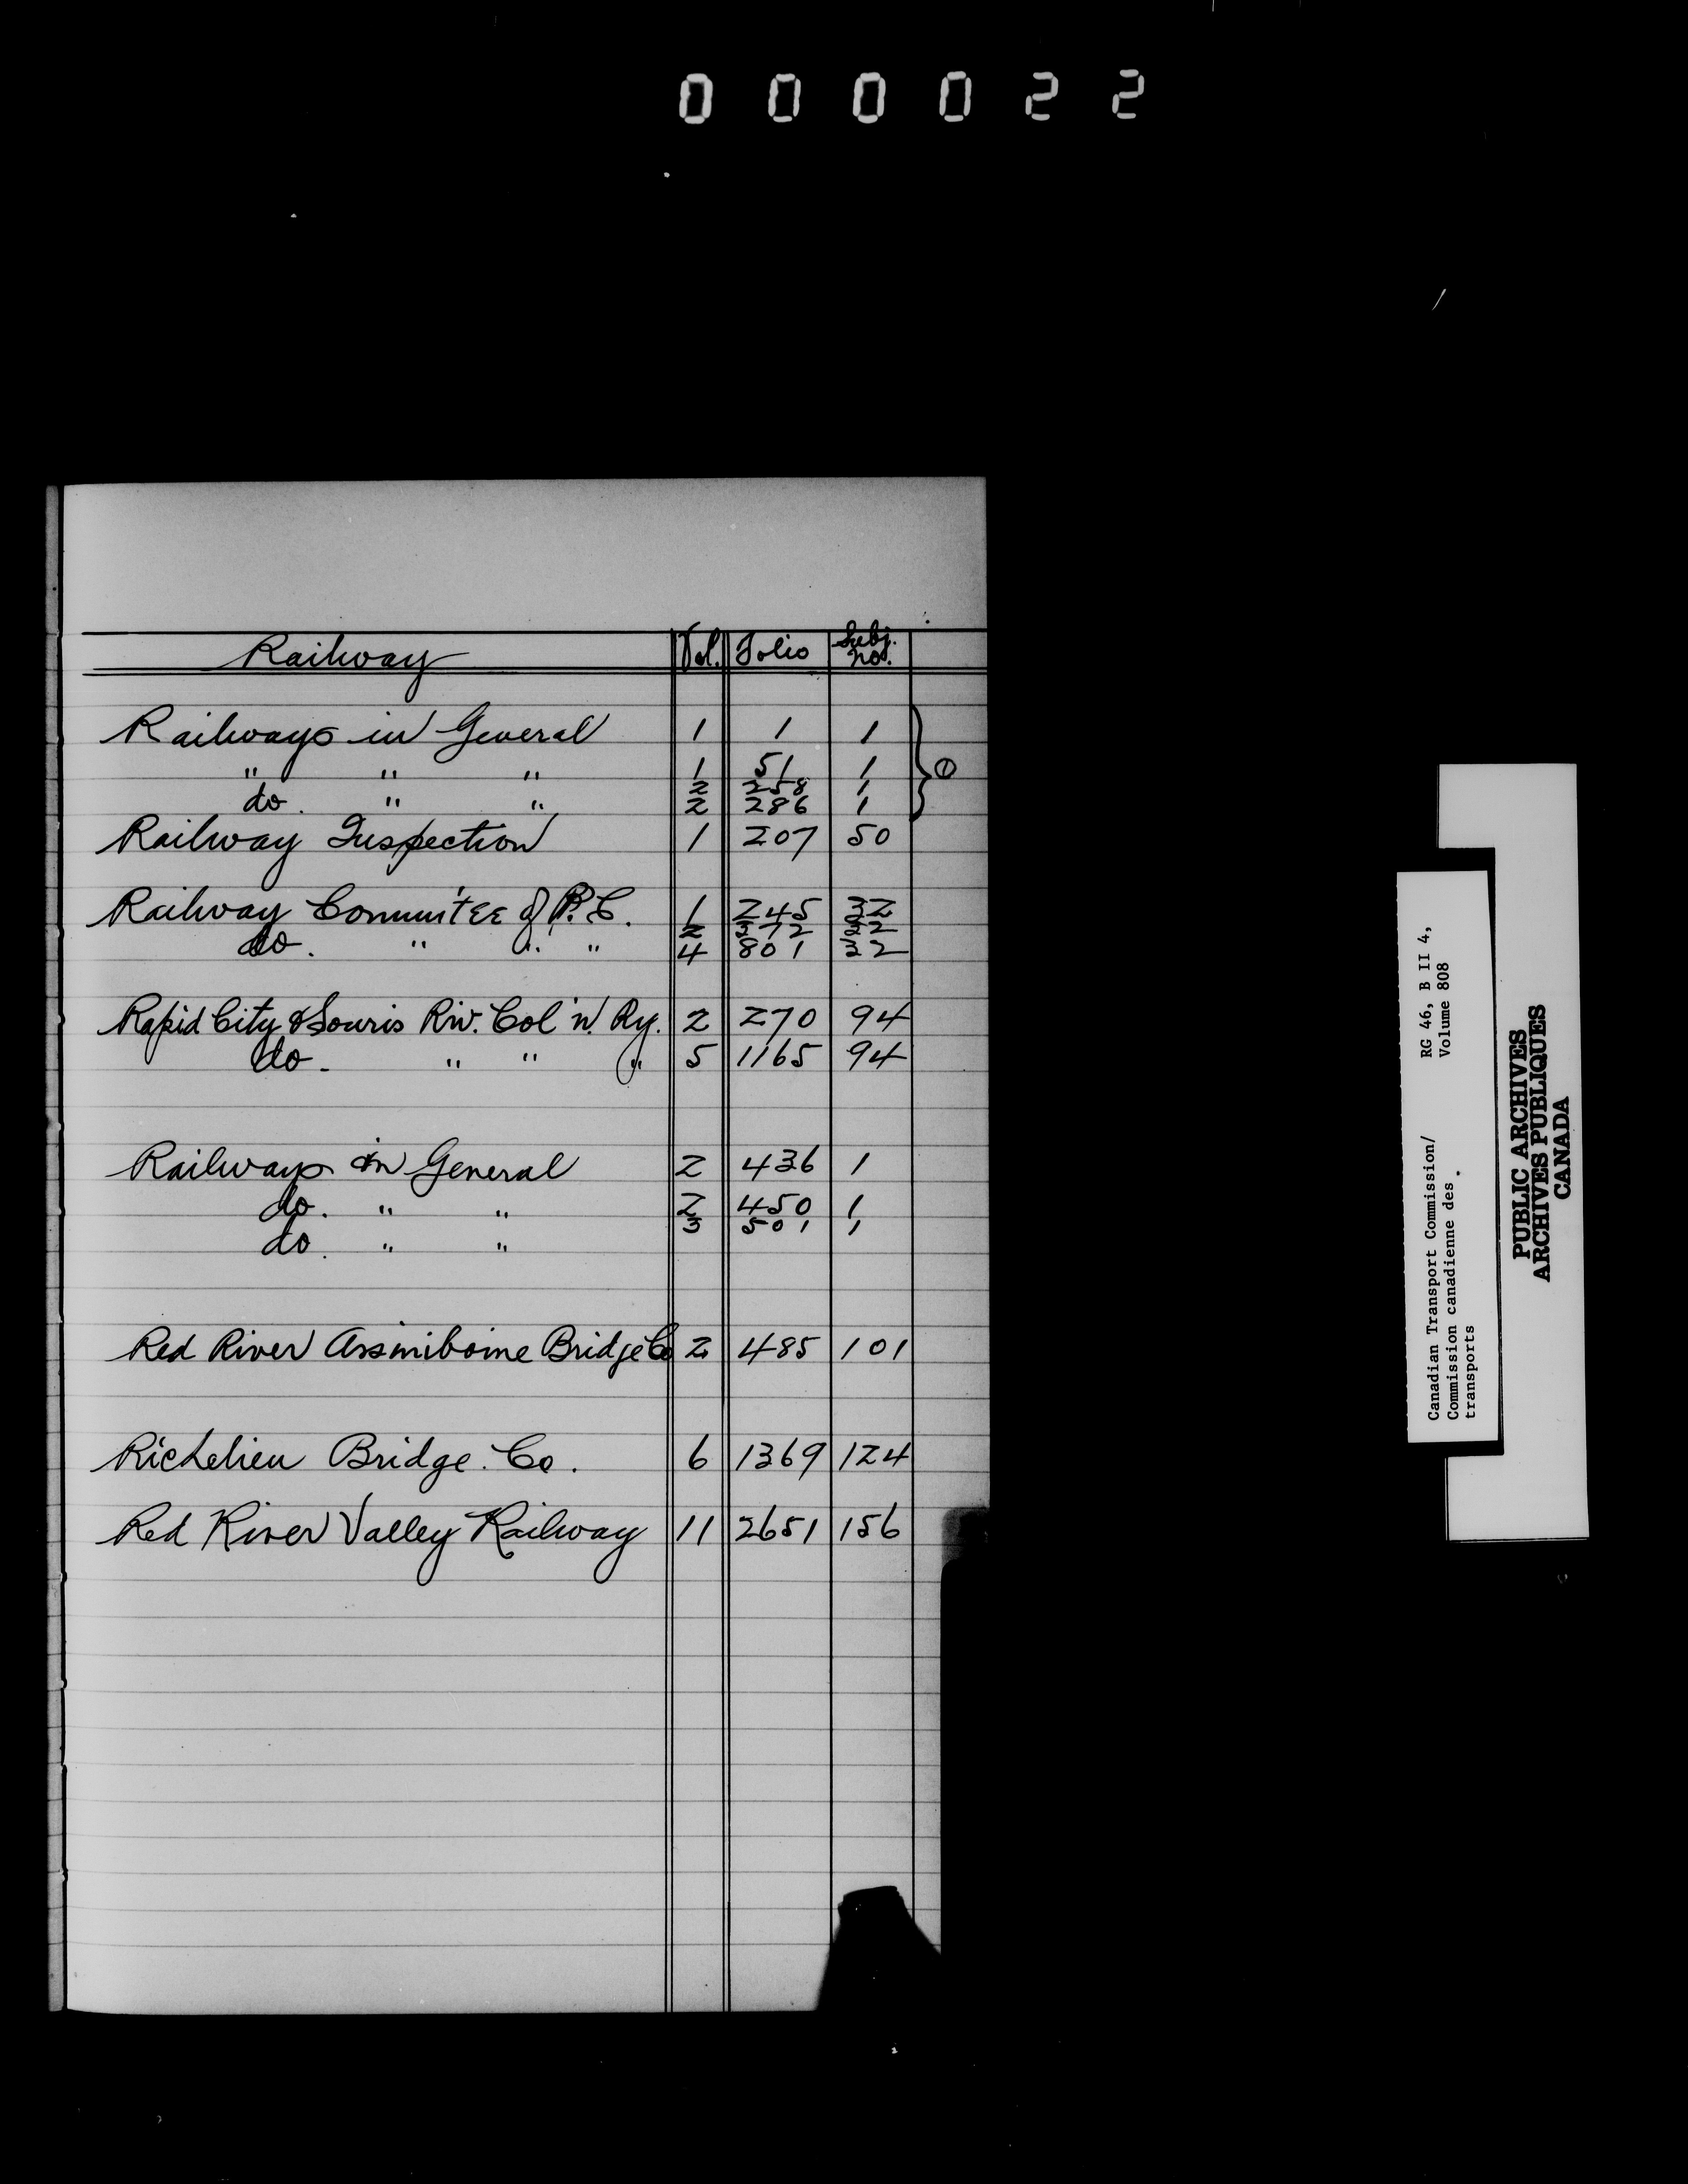 000022
Railway Vol. Folio Subj. no.
Railways in General 1 1 1
" " " 1 51 1
2 258 1
do. " " 2 286 1
①
Railway Inspection 1 207 50
Railway Committee of P.C. 1 245 32
2 372 32
do. " " " 4 801 32
Rapid City & Souris Riv. Col'n. Ry. 2 270 94
do. " " " 5 1165 94
Railways in General 2 436 1
do. " " 2 450 1
do. " " 3 501 1
Red River Assiniboine Bridge Co 2 485 101
Richelieu Bridge. Co. 6 1369 124
Red River Valley Railway 11 2651 156
Canadian Transport Commission/ RG 46, B II 4,
Commission canadienne des Volume 808
transports
PUBLIC ARCHIVES
ARCHIVES PUBLIQUES
CANADA